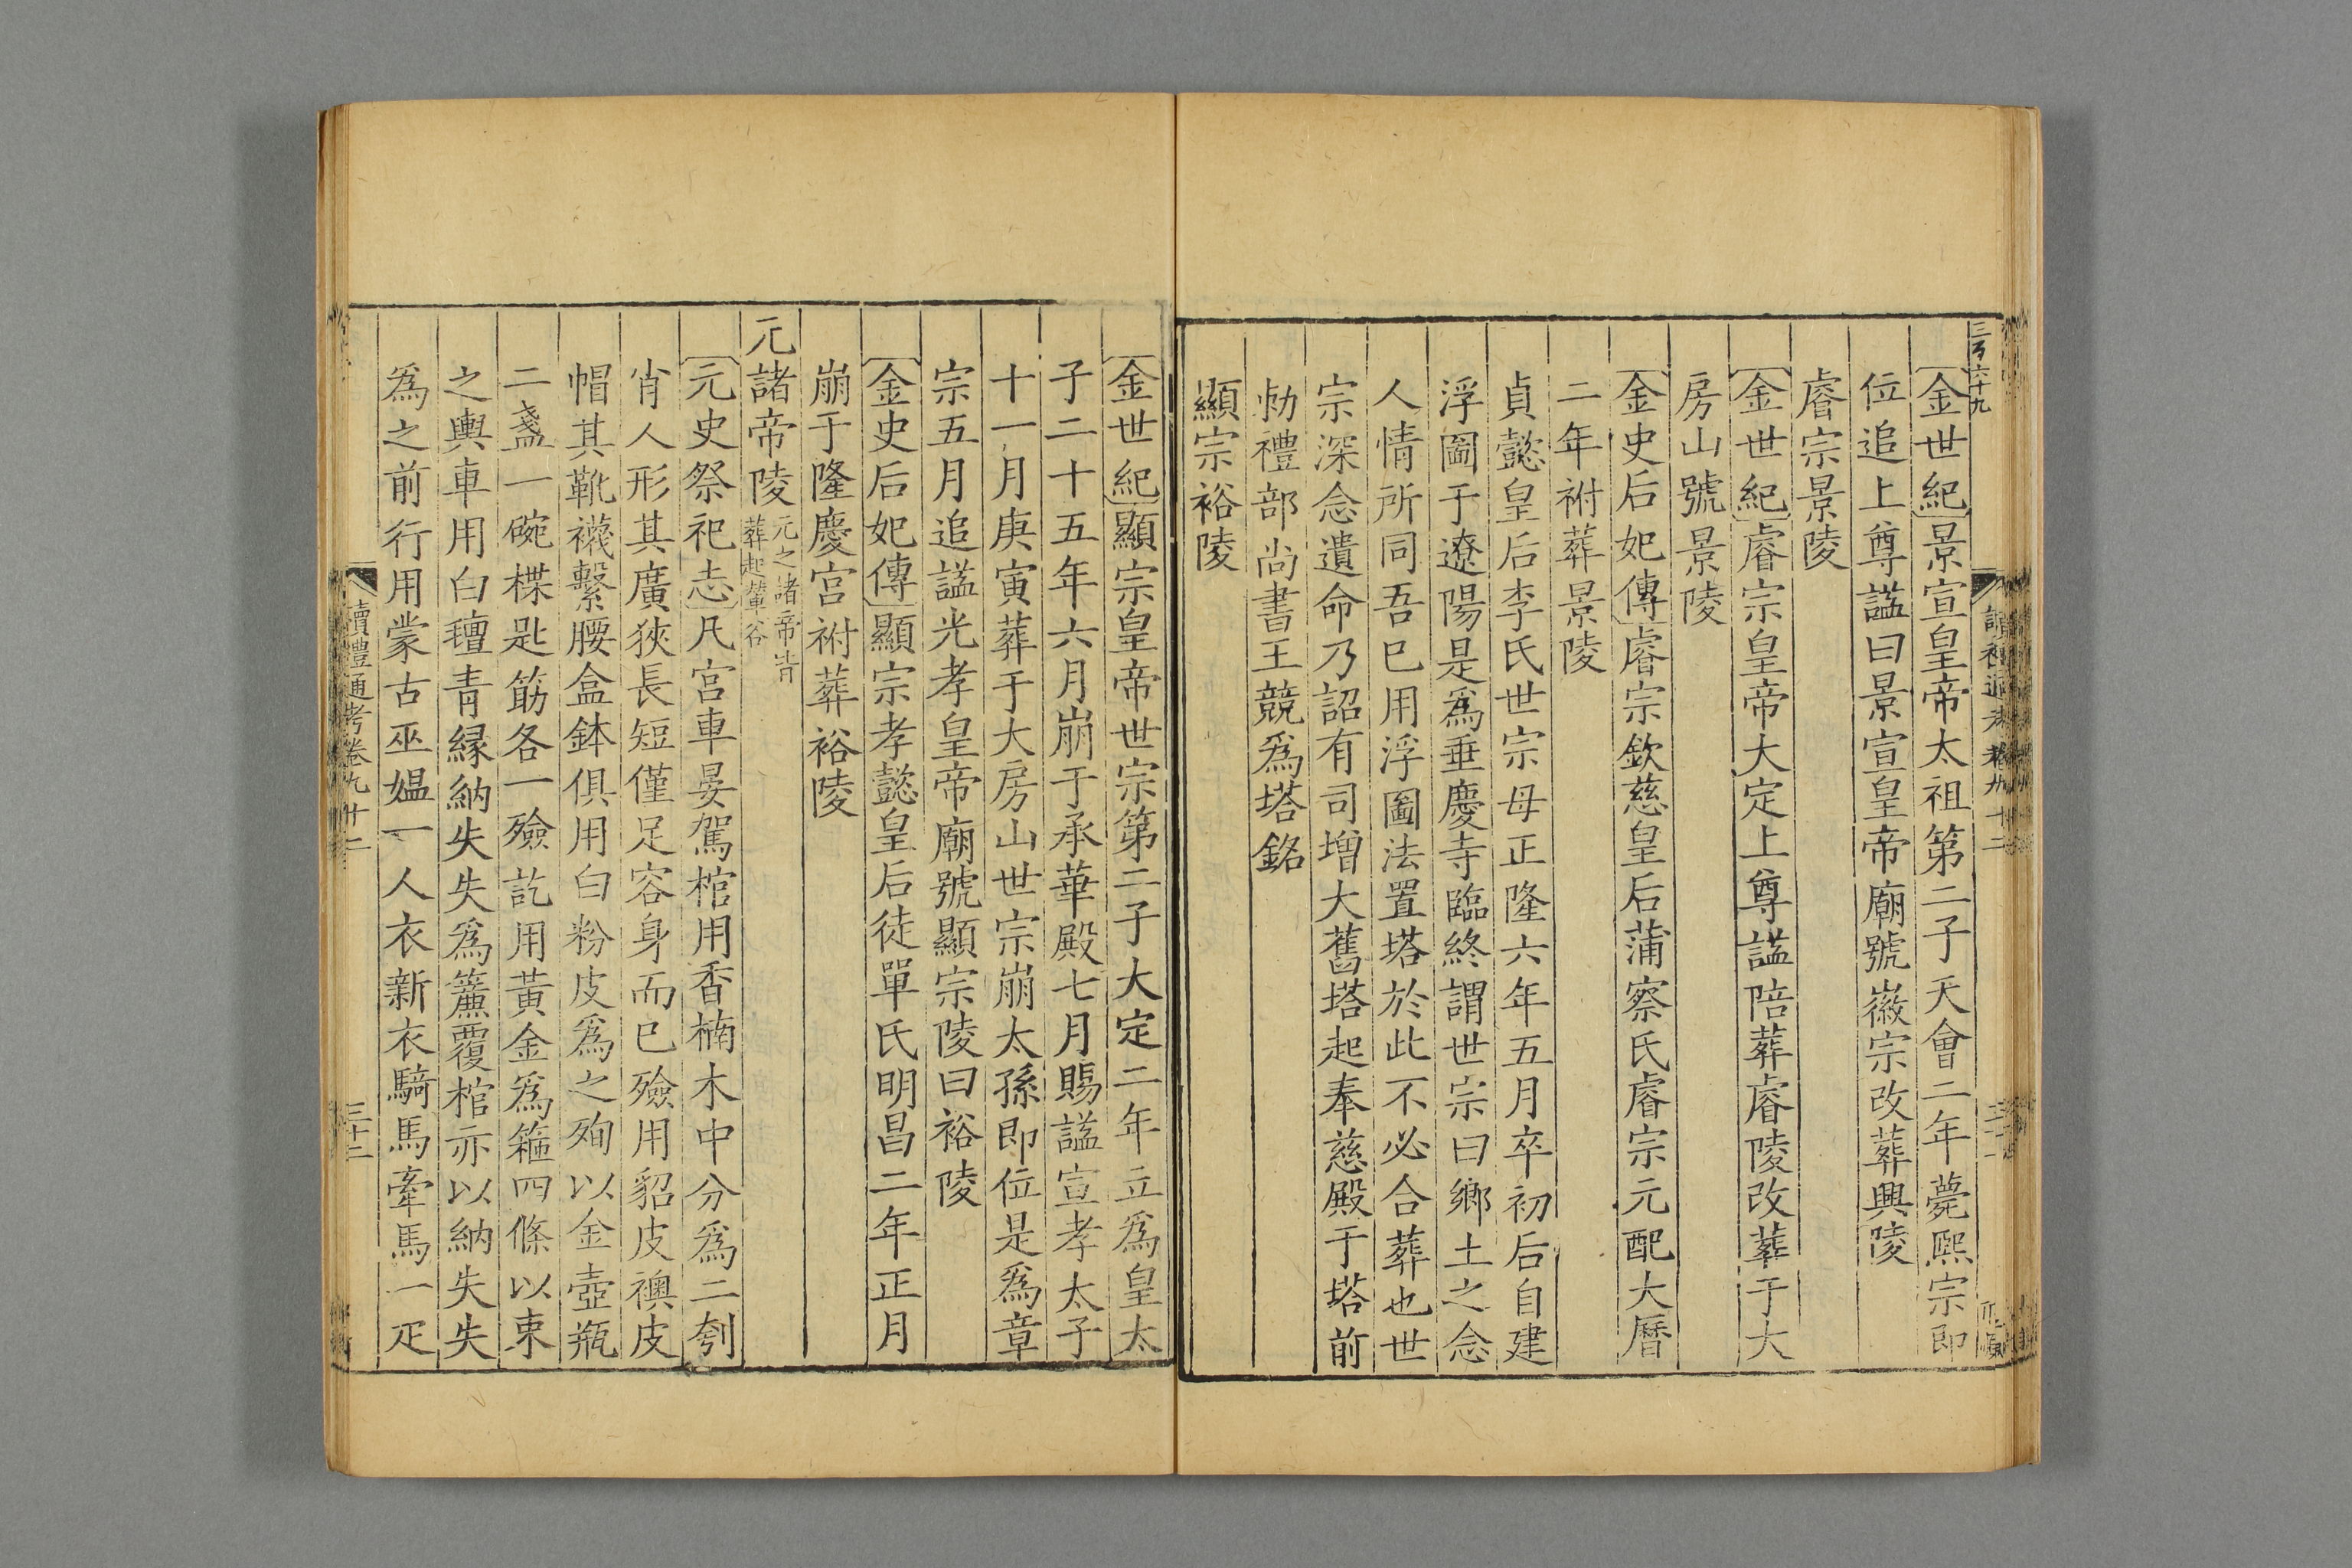 金世紀景宣皇帝太祖第二子天會二年薨熙宗即
位追上尊諡曰景宣皇帝廟號徽宗改葬興陵
睿宗景陵
金世紀睿宗皇帝大定上尊諡陪葬睿陵改葬于大
房山號景陵
金史后妃傳睿宗欽慈皇后蒲察氏睿宗元配大曆
二年祔葬景陵
貞懿皇后李氏世宗母正隆六年五月卒初后自建
浮圖于遼陽是爲垂慶寺臨終謂世宗曰鄉土之念
人情所同吾已用浮圖法置塔於此不必合葬也世
宗深念遺命乃詔有司增大舊塔起奉慈殿于塔前
勑禮部尚書王競爲塔銘
顯宗裕陵
金世紀顯宗皇帝世宗第二子大定二年立爲皇太
子二十五年六月崩于承華殿七月賜諡宣孝太子
十一月庚寅葬于大房山世宗崩太孫即位是爲章
宗五月追諡光孝皇帝廟號顯宗陵曰裕陵
金史后妃傳顯宗孝懿皇后徒單氏明昌二年正月
崩于隆慶宮祔葬裕陵
元諸帝陵元之諸帝皆
葬起輦谷
元史祭祀志凡宮車晏駕棺用香楠木中分爲二刳
肖人形其廣狹長短僅足容身而已殮用貂皮襖皮
帽其靴襪繫腰盒鉢俱用白粉皮爲之殉以金壺瓶
二盞一碗楪匙筯各一殮訖用黃金爲箍四條以束
之輿車用白氊青緣納失失爲簾覆棺亦以納失失
爲之前行用蒙古巫媼一人衣新衣騎馬牽馬一疋
讀禮通考卷九十二
三十二